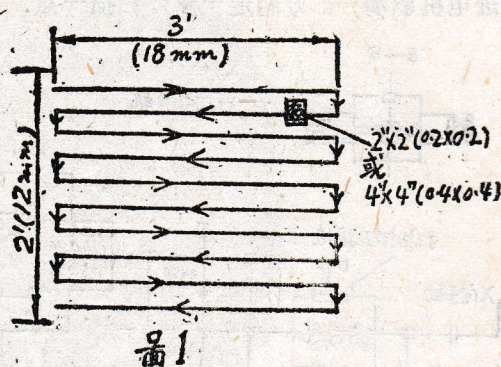 3'
(18mm)
2'(12mm)
2"X2"(0.2X0.2)
或
4"X4"(0.4X0.4)
啚1